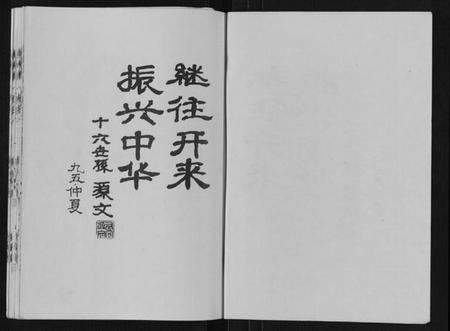 继往开来
振兴中华
十六世孫 源文
九五仲夏